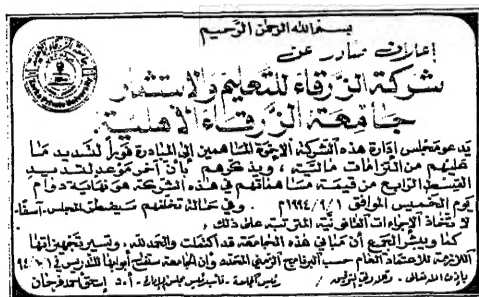 بسم الله الرحمن الرحيم
إعلان صادر عن
شركة الزرقاء للتعليم والاستثمار
جامعة الزرقاء الأهلية
يدعو مجلس إدارة هذه الشركة الإخوة المساهمين إلى المبادرة فوراً لتسديد ما
عليهم من التزامات مالية، ويذكرهم بأن آخر موعد لتسديد
القسط الرابع من قيمة مساهماتهم في هذه الشركة هو نهاية دوام
يوم الخميس الموافق ١٩٩٤/٩/١م. وفي حالة تخلفهم سيضطر المجلس آسفاً
لاتخاذ الإجراءات القانونية المترتبة على ذلك،
كما ويبشر الجميع أن مباني هذه الجامعة قد اكتملت والحمد لله، وتسير تجهيزاتها
اللازمة للاعتماد العام حسب البرنامج الزمني المحدد وإن الجامعة ستفتح أبوابها للتدريس في
بإذن الله تعالى. والله ولي التوفيق، رئيس الجامعة - نائب رئيس مجلس الإدارة - أ.د إسحق أحمد فرحان